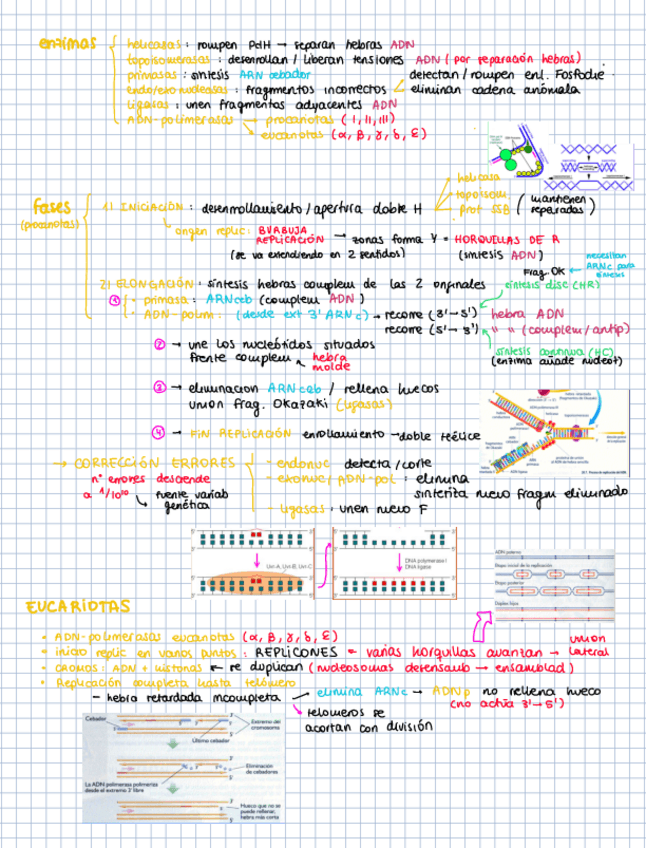 enzimas
helicasas : rompen PdH → separan hebras ADN
topoisomerasas : desenrollan / liberan tensiones ADN ( por separación hebras)
primasas : síntesis ARN cebador
detectan / rompen enl. Fosfodie
endo/exo nucleasas : fragmentos incorrectos
eliminan cadena anómala
ligasas : unen fragmentos adyacentes ADN
ADN-polimerasas → procariotas ( I, II, III )
eucariotas (α, β, γ, δ, ε)
fases
(procariotas)
1) INICIACIÓN : desenrrollamiento / apertura doble H
helicasa
topoisom
Prot SSB ( mantienen separadas )
origen replic: BURBUJA REPLICACIÓN → zonas forma Y = HORQUILLAS DE R
(se va extendiendo en 2 sentidos)
(síntesis ADN)
Frag. OK ← necesitan ARNc para síntesis
2) ELONGACIÓN : síntesis hebras complem de las 2 originales
síntesis disc (HR)
① - primasa : ARNceb (complem ADN )
- ADN-polim : (desde ext 3' ARNc) → recorre ( 3' → 5' ) hebra ADN
recorre (5' → 3') " " (complem / antip)
síntesis continua (HC)
(enzima añade nucleót)
② → une los nucleótidos situados
frente complem
hebra molde
③ → eliminación ARNceb / rellena huecos
union frag. Okazaki (ligasas)
④ → FIN REPLICACIÓN enrollamiento → doble hélice
→ CORRECCIÓN ERRORES
- endonuc detecta / corte
nº errores desciende
- exonuc / ADN-pol : elimina
sintetiza nuevo fragm eliminado
fuente variab genética
- ligasas : unen nuevo F
Uvr-A, Uvr-B, Uvr-C
DNA polymerase I
DNA ligase
ADN paterno
EUCARIOTAS
• ADN-polimerasas eucariotas (α, β, γ, δ, ε)
• inicio replic en varios puntos : REPLICONES = varias horquillas avanzan → union lateral
• CROMOS : ADN + histonas ← se duplican (nucleosomas desensamb → ensamblad)
• Replicación completa hasta telómero
- hebra retardada incompleta → elimina ARNc → ADNp no rellena hueco
(no actúa 3' → 5')
telomeros se
acortan con división
Cebador
Extremo del cromosoma
Último cebador
Eliminación de cebadores
La ADN polimerasa polimeriza
desde el extremo 3' libre
Hueco que no se
puede rellenar,
hebra más corta